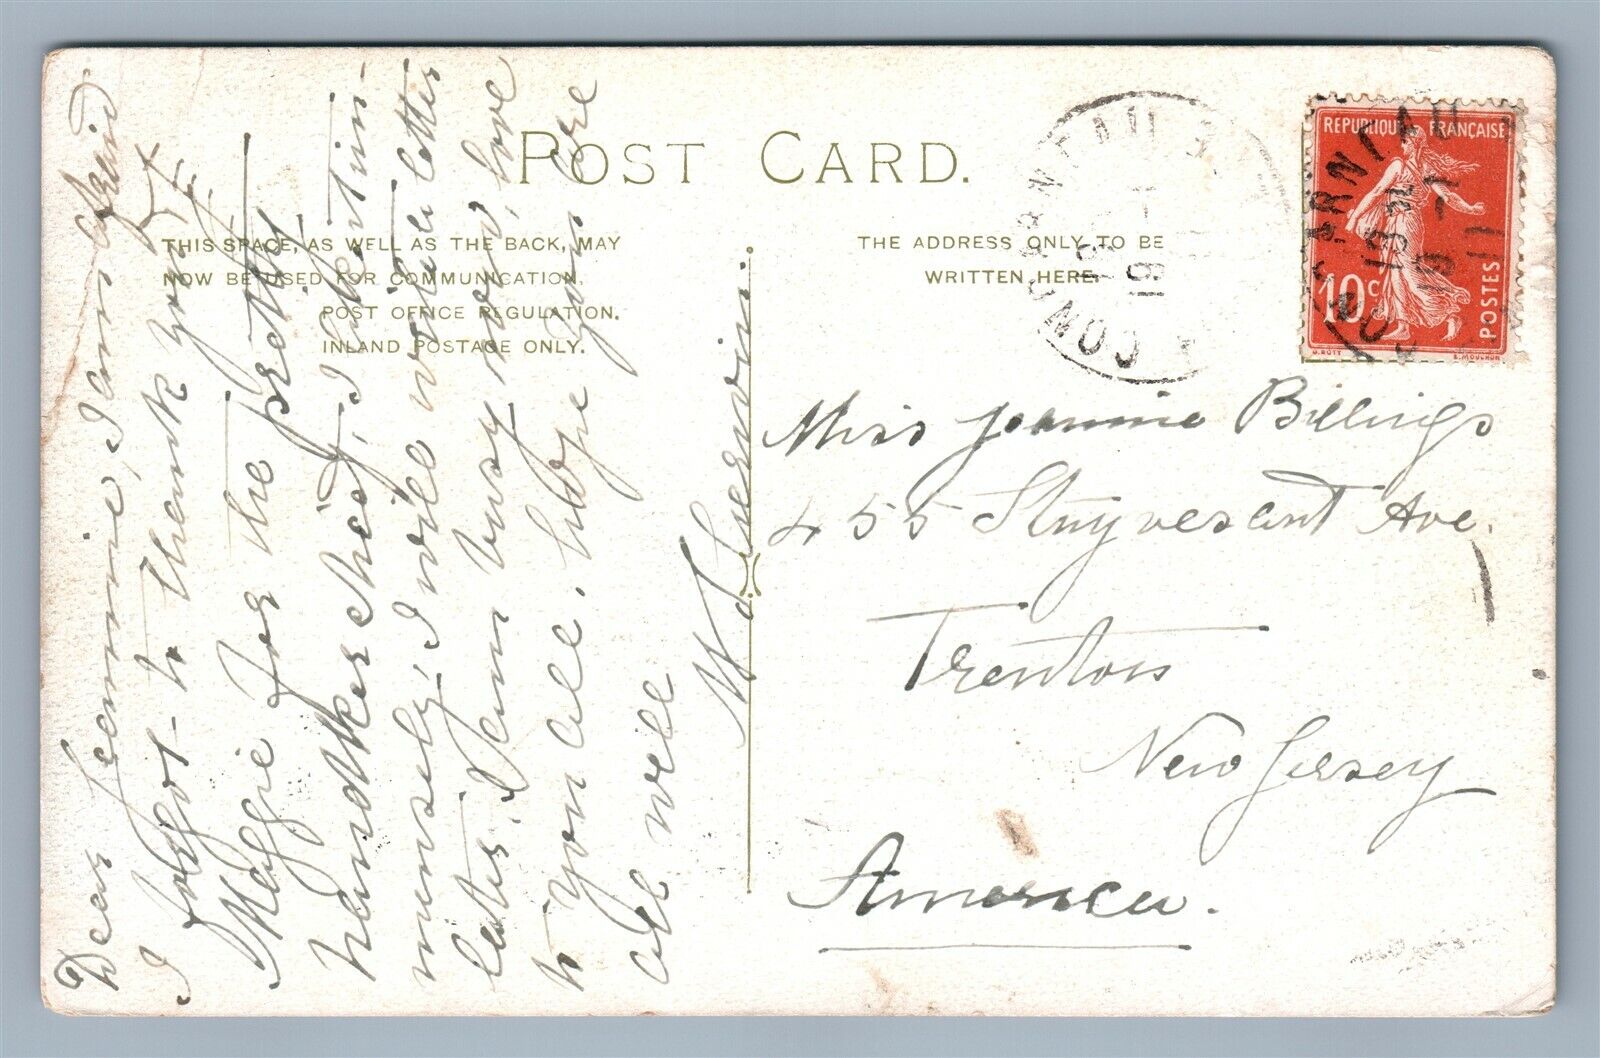 POST CARD.
THIS SPACE, AS WELL AS THE BACK, MAY
NOW BE USED FOR COMMUNICATION.
POST OFFICE REGULATION.
INLAND POSTAGE ONLY.
THE ADDRESS ONLY TO BE
WRITTEN HERE.
REPUBLIQUE FRANÇAISE
10c
POSTES
O. ROTY
E. MOUCHON
Dear Jeannie, I am afraid
I forgot to thank you &
Maggie for the pretty
handkerchief, I hasten im-
mensely, I will write letter
later. I am busy now, love
to you all. hope you are
all well
Miss Jeannie Billings
455 Stuyvesant Ave.
Trenton
New Jersey
America.